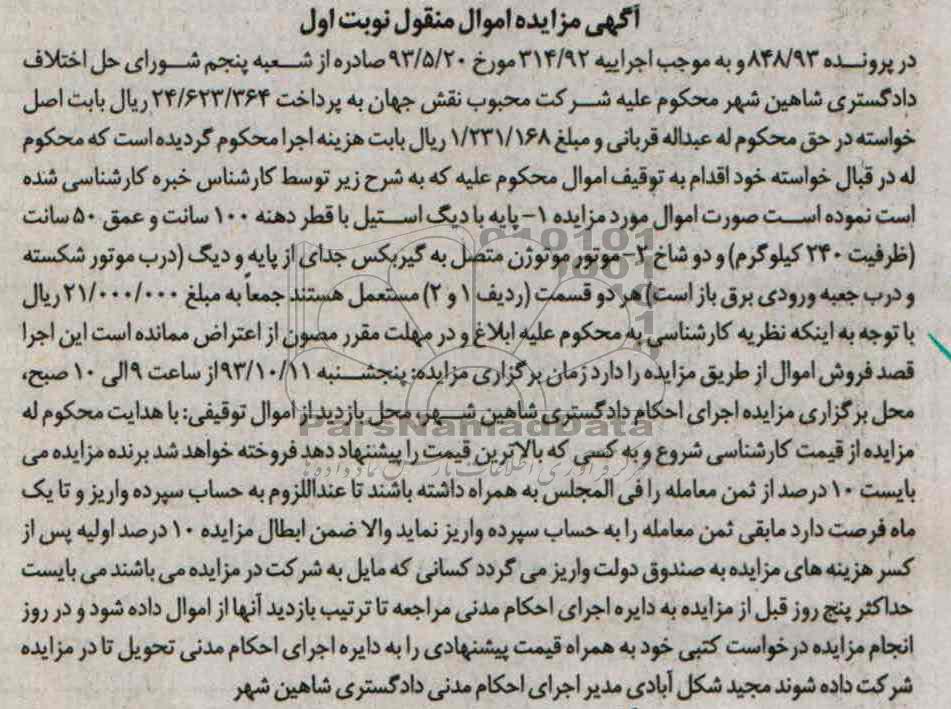 آگهی مزایده اموال منقول نوبت اول
در پرونده ۸۴۸/۹۳ و به موجب اجراییه ۳۱۴/۹۲ مورخ ۹۳/۵/۲۰ صادره از شعبه پنجم شورای حل اختلاف
دادگستری شاهین شهر محکوم علیه شرکت محبوب نقش جهان به پرداخت ۲۴/۶۲۳/۳۶۴ ریال بابت اصل
خواسته در حق محکوم له عبداله قربانی و مبلغ ۱/۲۳۱/۱۶۸ ریال بابت هزینه اجرا محکوم گردیده است که محکوم
له در قبال خواسته خود اقدام به توقیف اموال محکوم علیه که به شرح زیر توسط کارشناس خبره کارشناسی شده
است نموده است صورت اموال مورد مزایده ۱- پایه با دیگ استیل با قطر دهنه ۱۰۰ سانت و عمق ۵۰ سانت
(ظرفیت ۲۴۰ کیلوگرم) و دو شاخ ۲- موتور مونوژن متصل به گیربکس جدای از پایه و دیگ (درب موتور شکسته
و درب جعبه ورودی برق باز است) هر دو قسمت (ردیف ۱ و ۲) مستعمل هستند جمعاً به مبلغ ۲۱/۰۰۰/۰۰۰ ریال
با توجه به اینکه نظریه کارشناسی به محکوم علیه ابلاغ و در مهلت مقرر مصون از اعتراض ممانده است این اجرا
قصد فروش اموال از طریق مزایده را دارد زمان برگزاری مزایده: پنجشنبه ۹۳/۱۰/۱۱ از ساعت ۹ الی ۱۰ صبح،
محل برگزاری مزایده اجرای احکام دادگستری شاهین شهر، محل بازدید از اموال توقیفی: با هدایت محکوم له
مزایده از قیمت کارشناسی شروع و به کسی که بالاترین قیمت را پیشنهاد دهد فروخته خواهد شد برنده مزایده می
بایست ۱۰ درصد از ثمن معامله را فی المجلس به همراه داشته باشند تا عنداللزوم به حساب سپرده واریز و تا یک
ماه فرصت دارد مابقی ثمن معامله را به حساب سپرده واریز نماید والا ضمن ابطال مزایده ۱۰ درصد اولیه پس از
کسر هزینه های مزایده به صندوق دولت واریز می گردد کسانی که مایل به شرکت در مزایده می باشند می بایست
حداکثر پنج روز قبل از مزایده به دایره اجرای احکام مدنی مراجعه تا ترتیب بازدید آنها از اموال داده شود و در روز
انجام مزایده درخواست کتبی خود به همراه قیمت پیشنهادی را به دایره اجرای احکام مدنی تحویل تا در مزایده
شرکت داده شوند مجید شکل آبادی مدیر اجرای احکام مدنی دادگستری شاهین شهر
ParsNamadData